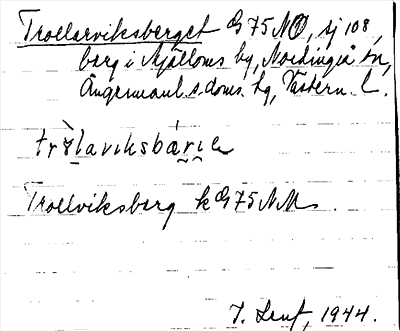 Trollarviksberget G75NO, ej 108,
berg i Mjälloms by, Nordingrå sn,
Ångermanl. s. doms. hg, Västern. l.
trɔ̀lavıksbárıe
Trollviksberg k G75NM.
J. Lenf, 1944.